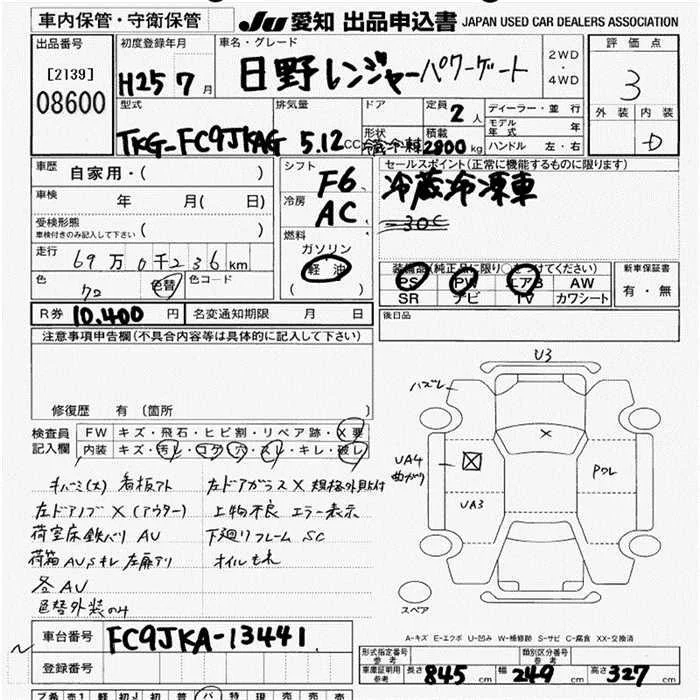 車内保管・守衛保管
JU 愛知 出品申込書 JAPAN USED CAR DEALERS ASSOCIATION
出品番号
[2139]
08600
初度登録年月
H25 7 月
車名・グレード
日野レンジャー パワーゲート
2WD
・
4WD
評価点
3
外装 内装
D
型式
TKG-FC9JKAG
排気量
5.12 CC
ドア
形状
冷蔵冷凍
定員
2 人
積載
2800 kg
ディーラー・並行
モデル年式 年
ハンドル 左・右
車歴 自家用・( )
車検 年 月( 日)
受検形態
車検付きのみ記入して下さい ( )
走行 69万0千236 km
色 クロ 色替 色コード
シフト
F6
冷房
AC
燃料
ガソリン
軽油
( )
セールスポイント(正常に機能するものに限ります)
冷蔵冷凍車
-30℃
装備品(純正品に限り○をつけてください)
PS PW エアB AW
SR ナビ TV カワシート
新車保証書
有・無
R券 10,400 円 名変通知期限 月 日
後日品
注意事項申告欄(不具合内容等は具体的に記入して下さい)
修復歴 有 〔箇所 〕
検査員
記入欄
FW キズ・飛石・ヒビ割・リペア跡・X要
内装 キズ・汚レ・コゲ・穴・スレ・キレ・破レ
キバミ(大) 看板アト
左ドアノブ X (アウター)
荷室床鉄バリ AU
各AU
色替外装のみ
左ドアガラス X 規格外貼付
上物不良 エラー表示
下廻りフレーム SC
オイルもれ
U3
ハズレ
UA4
曲ガリ
UA3
Pクレ
スペア
A-キズ E-エクボ U-凹み W-補修跡 S-サビ C-腐食 XX-交換済
車台番号 FC9JKA-13441
登録番号
形式指定番号
参考
類別区分番号
参考
車庫証明用
参考
長さ 845 cm 幅 249 cm 高さ 327 cm